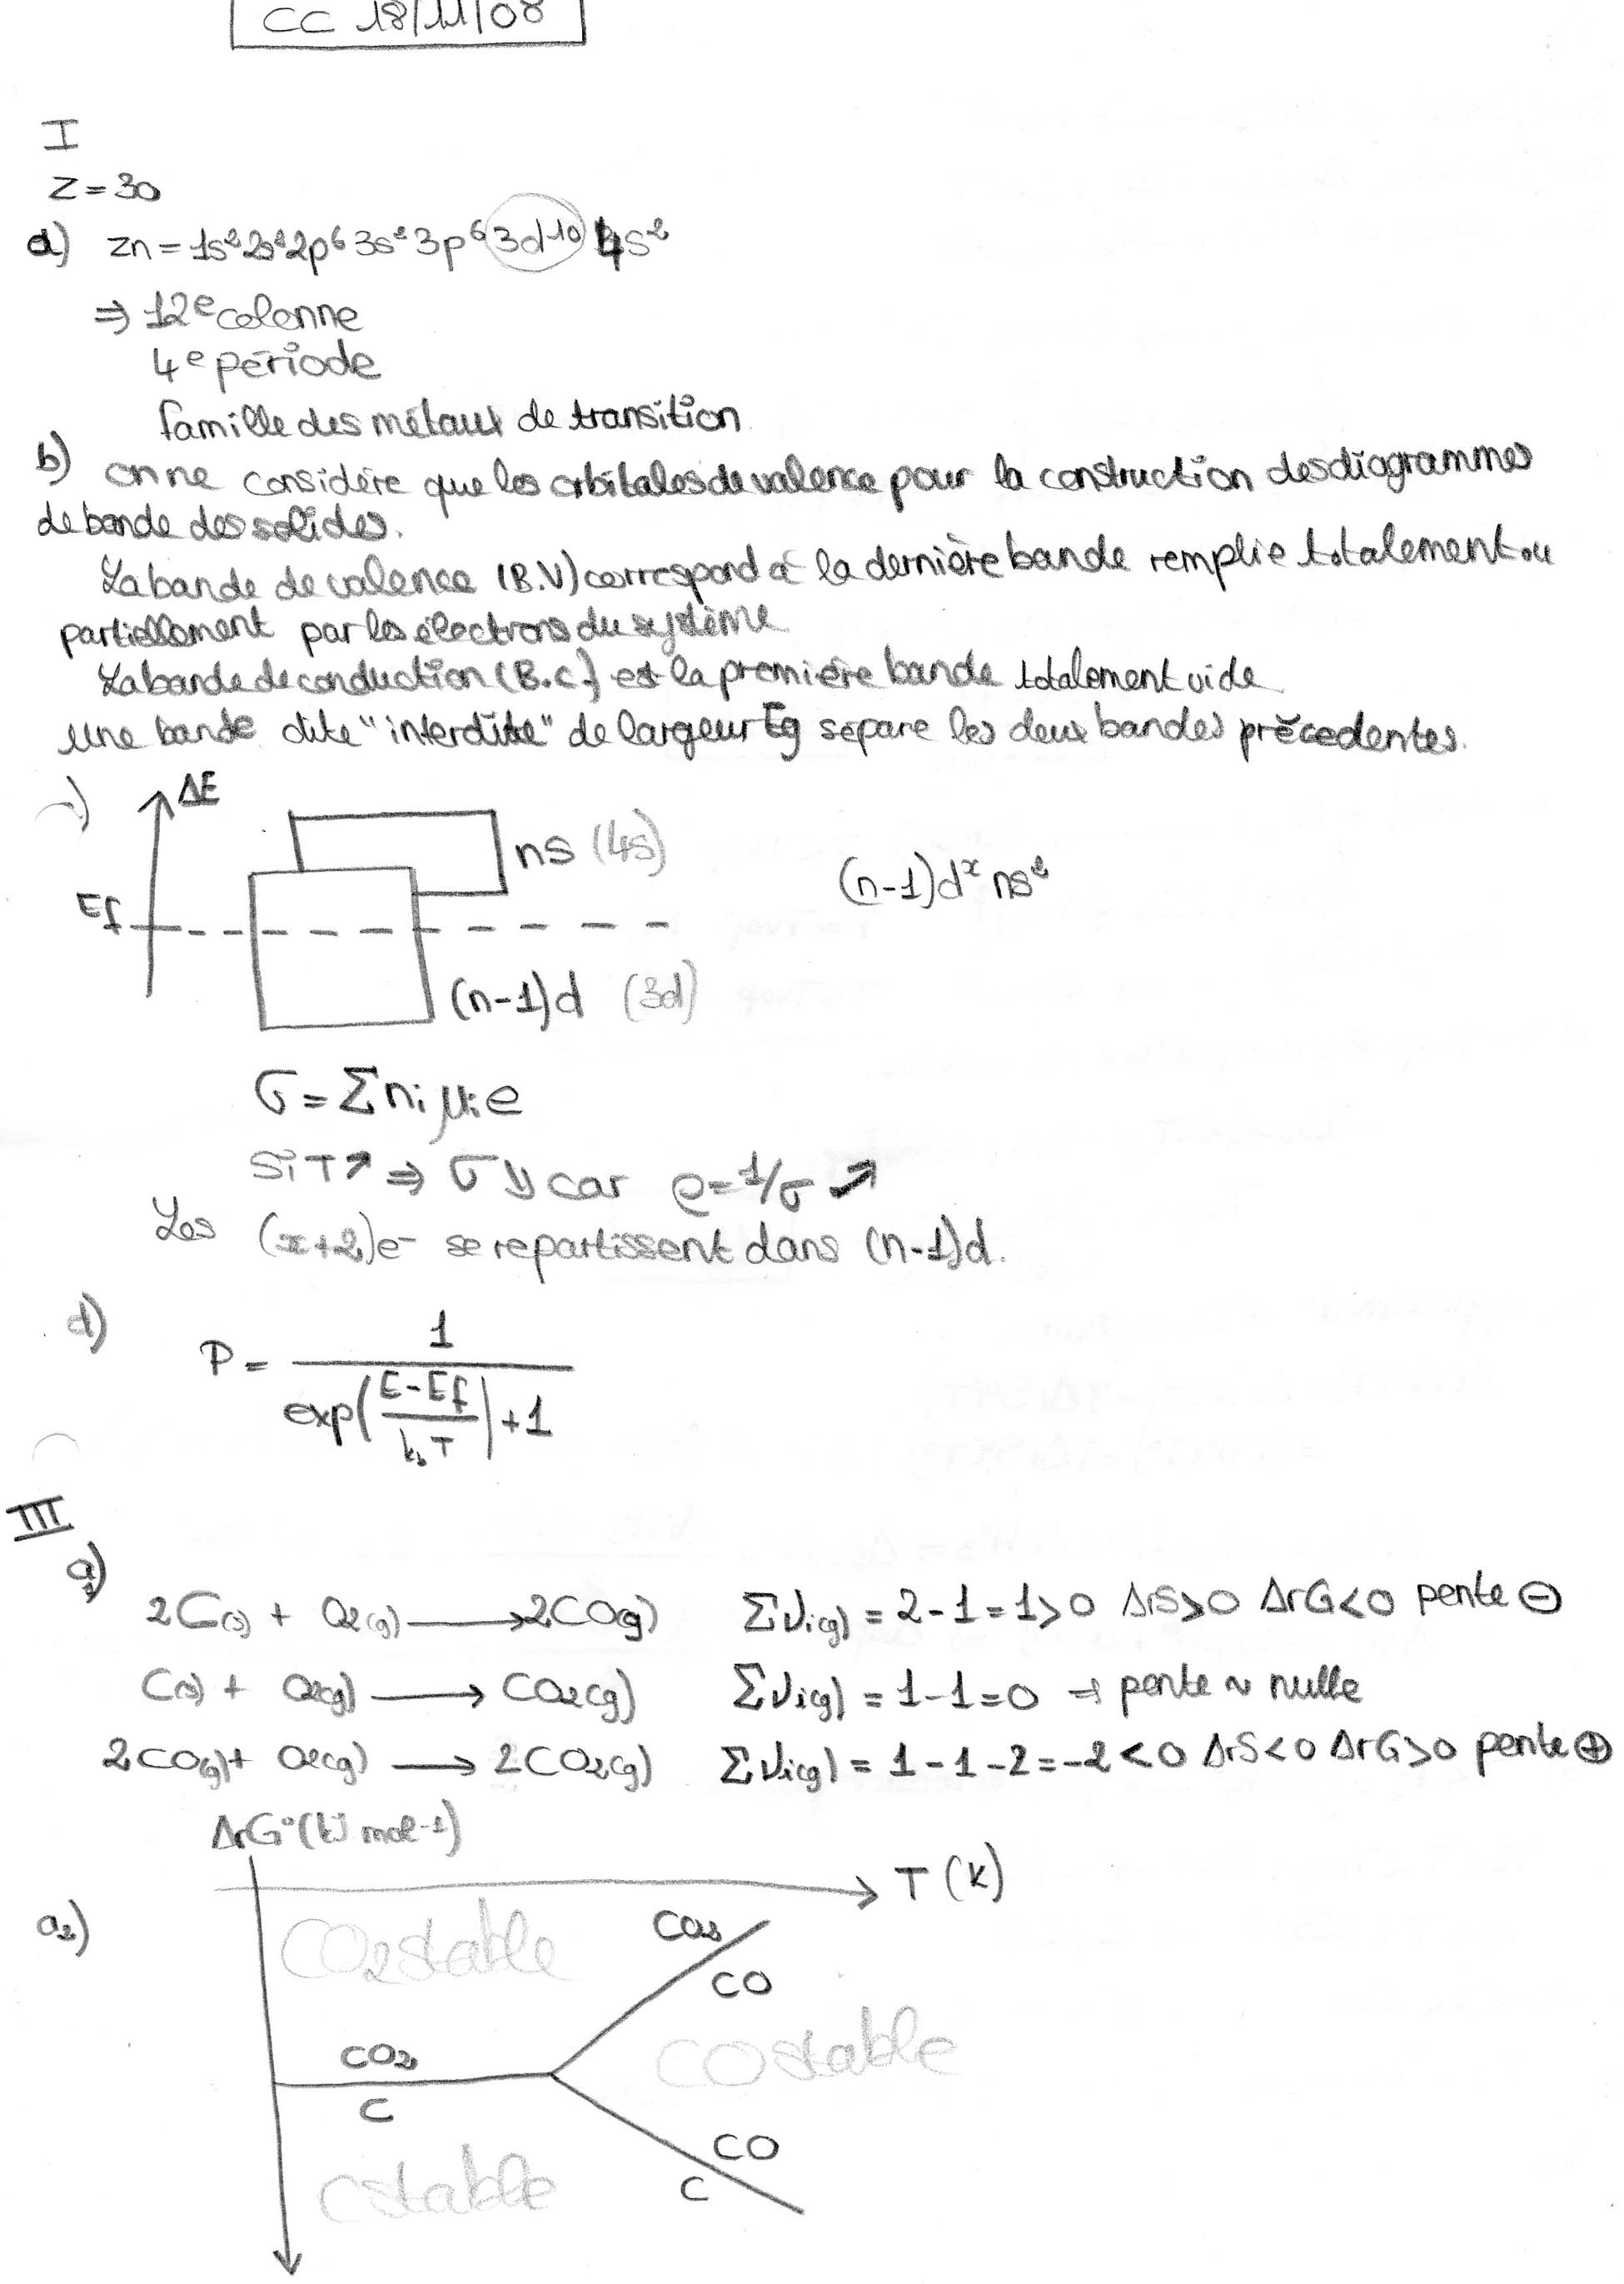 CC 18/11/08
I
Z=30
a) Zn = 1s² 2s² 2p⁶ 3s² 3p⁶ 3d¹⁰ 4s²
⇒ 12e colonne
4e période
famille des métaux de transition
b) on ne considère que les orbitales de valence pour la construction des diagrammes
de bande des solides.
La bande de valence (B.V) correspond à la dernière bande remplie totalement ou
partiellement par les électrons du système
La bande de conduction (B.C.) est la première bande totalement vide
Une bande dite "interdite" de largeur Eg sépare les deux bandes précedentes.
c) ΔE
ns (4s)
(n-1)dˣ ns²
Ef
(n-1)d (3d)
σ = Σ ni μi e
Si T ↗ ⇒ σ ↘ car ρ = 1/σ ↗
Les (x+2)e- se repartissent dans (n-1)d.
d) P = 1 / (exp((E-Ef)/(kbT)) + 1)
III
a1)
2C(s) + O2(g) ⟶ 2CO(g) Σνi(g) = 2-1=1>0 ΔrS>0 ΔrG<0 pente ⊖
C(s) + O2(g) ⟶ CO2(g) Σνi(g) = 1-1=0 → pente ~ nulle
2CO(g) + O2(g) ⟶ 2CO2(g) Σνi(g) = 1-1-2=-2<0 ΔrS<0 ΔrG>0 pente ⊕
ΔrG°(kJ mol-1)
T (K)
a2)
CO2 stable
CO2
CO
CO stable
CO2
C
CO
C
C stable